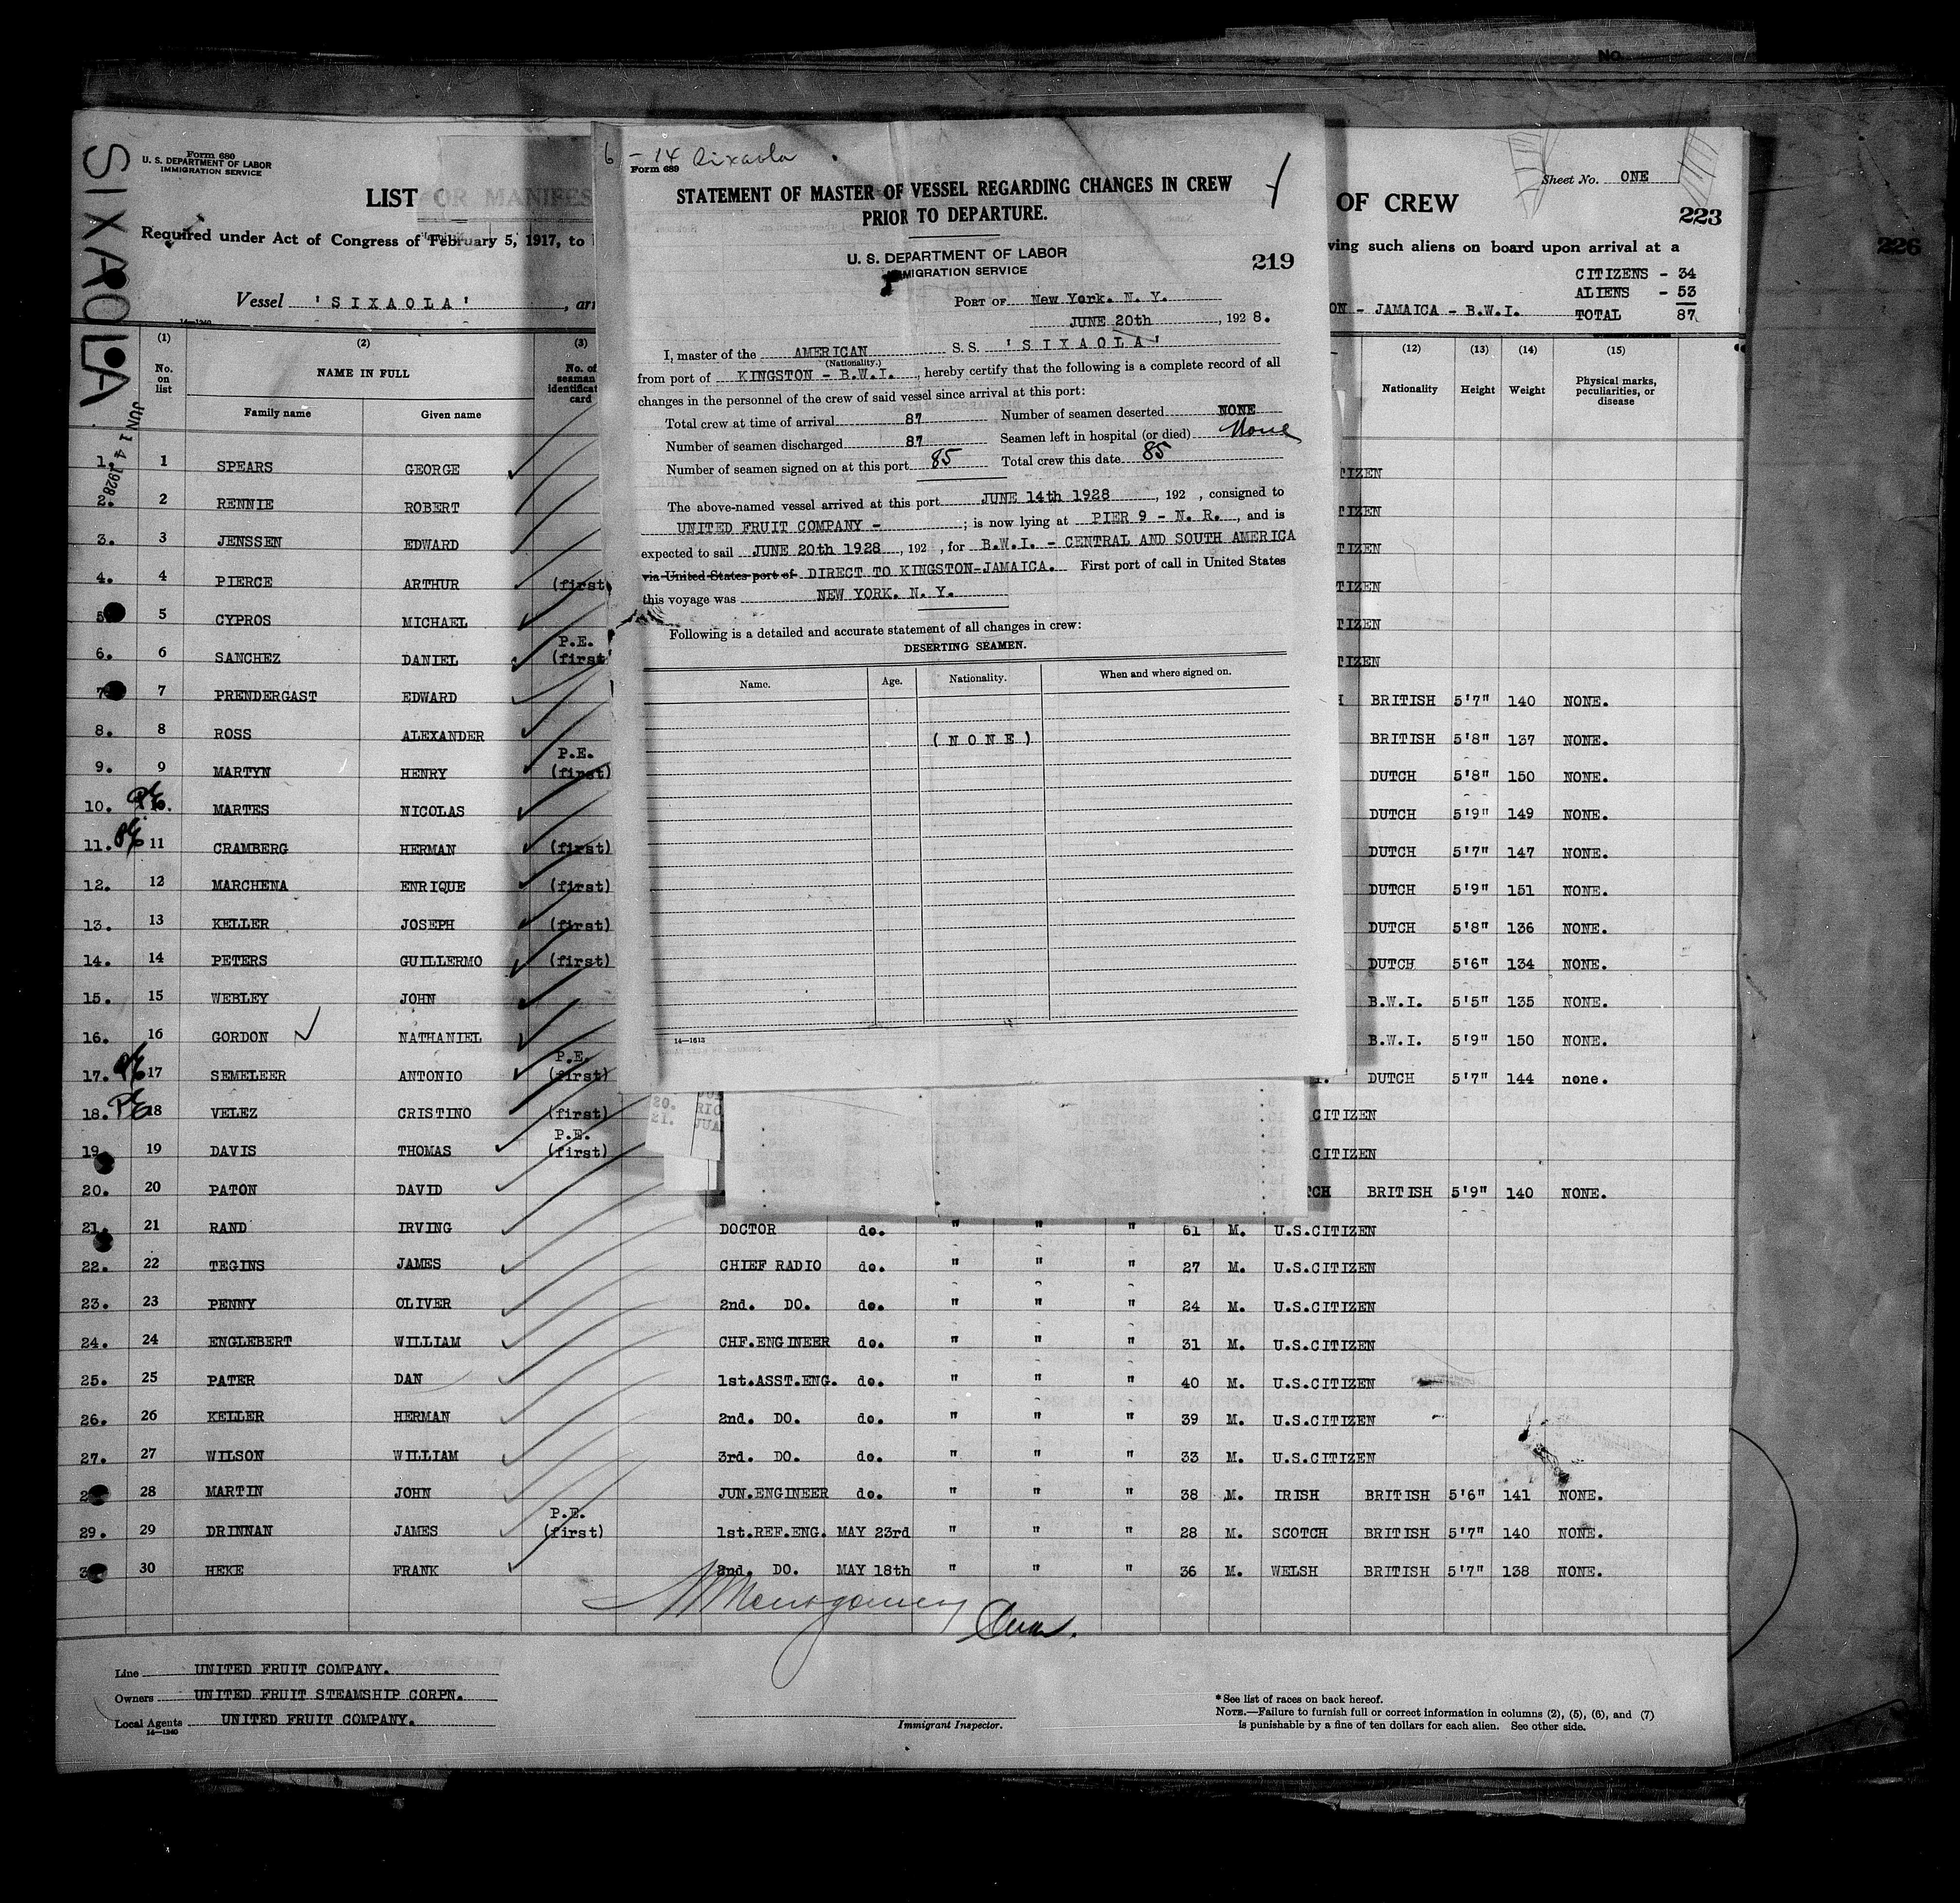 NO.
SIXAOLA
JUN 14 1928
Form 680
U. S. DEPARTMENT OF LABOR
IMMIGRATION SERVICE
LIST OR MANIFES
OF CREW
Sheet No. ONE
223
226
Required under Act of Congress of February 5, 1917, to
ving such aliens on board upon arrival at a
CITIZENS - 34
ALIENS - 53
TOTAL 87
Vessel 'SIXAOLA', arr
ON - JAMAICA - B.W.I.
14—1240
(1) (2) (3) (12) (13) (14) (15)
No. on list
NAME IN FULL
Family name Given name
No. of seaman identificat card
Nationality Height Weight Physical marks, peculiarities, or disease
6 - 14 Sixaola
Form 689
STATEMENT OF MASTER OF VESSEL REGARDING CHANGES IN CREW
PRIOR TO DEPARTURE.
U. S. DEPARTMENT OF LABOR
IMMIGRATION SERVICE
219
PORT OF New York. N. Y.
JUNE 20th, 1928.
I, master of the AMERICAN S. S. 'SIXAOLA'
(Nationality.)
from port of KINGSTON - B.W.I., hereby certify that the following is a complete record of all
changes in the personnel of the crew of said vessel since arrival at this port:
Total crew at time of arrival 87 Number of seamen deserted NONE
Number of seamen discharged 87 Seamen left in hospital (or died) None
Number of seamen signed on at this port 85 Total crew this date 85
The above-named vessel arrived at this port JUNE 14th 1928, 192 , consigned to
UNITED FRUIT COMPANY - ; is now lying at PIER 9 - N. R., and is
expected to sail JUNE 20th 1928, 192 , for B.W.I. - CENTRAL AND SOUTH AMERICA
via United States port of DIRECT TO KINGSTON-JAMAICA. First port of call in United States
this voyage was NEW YORK. N. Y.
Following is a detailed and accurate statement of all changes in crew:
DESERTING SEAMEN.
Name. Age. Nationality. When and where signed on.
(NONE)
14—1613
20. RIO
21. JUA
1. 1 SPEARS GEORGE TIZEN
2. 2 RENNIE ROBERT TIZEN
3. 3 JENSSEN EDWARD TIZEN
4. 4 PIERCE ARTHUR (first) TIZEN
5 5 CYPROS MICHAEL TIZEN
6. 6 SANCHEZ DANIEL P.E. (first TIZEN
7 7 PRENDERGAST EDWARD H BRITISH 5'7" 140 NONE.
8. 8 ROSS ALEXANDER BRITISH 5'8" 137 NONE.
9. 9 MARTYN HENRY P.E. (first) DUTCH 5'8" 150 NONE.
10. PE 10. MARTES NICOLAS DUTCH 5'9" 149 NONE.
11. PE 11 CRAMBERG HERMAN (first) DUTCH 5'7" 147 NONE.
12. 12 MARCHENA ENRIQUE (first) DUTCH 5'9" 151 NONE.
13. 13 KELLER JOSEPH (first) DUTCH 5'8" 136 NONE.
14. 14 PETERS GUILLERMO (first) DUTCH 5'6" 134 NONE.
15. 15 WEBLEY JOHN B.W.I. 5'5" 135 NONE.
16. 16 GORDON NATHANIEL B.W.I. 5'9" 150 NONE.
17. PE 17 SEMELEER ANTONIO P.E. (first) DUTCH 5'7" 144 none.
18. PE 18 VELEZ CRISTINO (first) CITIZEN
19 19 DAVIS THOMAS P.E. (first) CITIZEN
20. 20 PATON DAVID TCH BRITISH 5'9" 140 NONE.
21. 21 RAND IRVING DOCTOR do. " " " 61 M. U.S.CITIZEN
22. 22 TEGINS JAMES CHIEF RADIO do. " " " 27 M. U.S.CITIZEN
23. 23 PENNY OLIVER 2nd. DO. do. " " " 24 M. U.S.CITIZEN
24. 24 ENGLEBERT WILLIAM CHF.ENGINEER do. " " " 31 M. U.S.CITIZEN
25. 25 PATER DAN 1st.ASST.ENG. do. " " " 40 M. U.S.CITIZEN
26. 26 KELLER HERMAN 2nd. DO. do. " " " 39 M. U.S.CITIZEN
27. 27 WILSON WILLIAM 3rd. DO. do. " " " 33 M. U.S.CITIZEN
2 28 MARTIN JOHN JUN.ENGINEER do. " " " 38 M. IRISH BRITISH 5'6" 141 NONE.
29. 29 DRINNAN JAMES P.E. (first) 1st.REF.ENG. MAY 23rd " " " 28 M. SCOTCH BRITISH 5'7" 140 NONE.
3 30 HEKE FRANK 2nd. DO. MAY 18th " " " 36 M. WELSH BRITISH 5'7" 138 NONE.
Montgomery
Line UNITED FRUIT COMPANY.
Owners UNITED FRUIT STEAMSHIP CORPN.
Local Agents UNITED FRUIT COMPANY.
14—1240
Immigrant Inspector.
* See list of races on back hereof.
NOTE.—Failure to furnish full or correct information in columns (2), (5), (6), and (7)
is punishable by a fine of ten dollars for each alien. See other side.